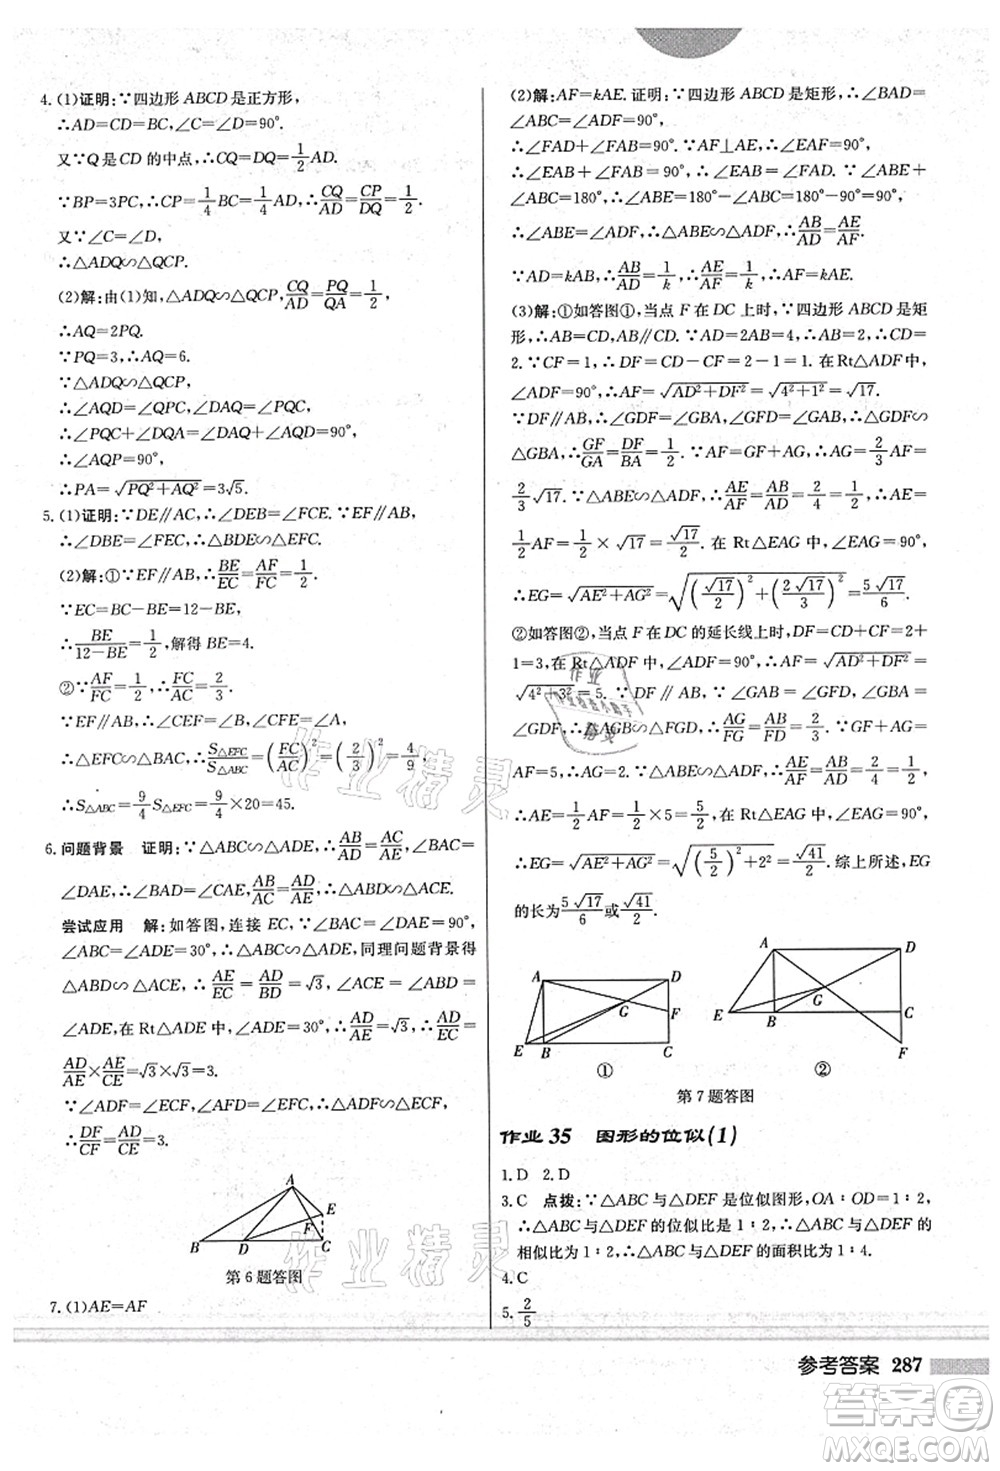 4. (1)证明:∵四边形 ABCD 是正方形,
∴AD=CD=BC,∠C=∠D=90°.
又∵Q 是 CD 的中点,∴CQ=DQ=1/2AD.
∵BP=3PC,∴CP=1/4BC=1/4AD,∴CQ/AD=CP/DQ=1/2.
又∵∠C=∠D,
∴△ADQ∽△QCP.
(2)解:由(1)知,△ADQ∽△QCP,CQ/AD=PQ/QA=1/2,
∴AQ=2PQ.
∵PQ=3,∴AQ=6.
∵△ADQ∽△QCP,
∴∠AQD=∠QPC,∠DAQ=∠PQC,
∴∠PQC+∠DQA=∠DAQ+∠AQD=90°,
∴∠AQP=90°,
∴PA=√(PQ²+AQ²)=3√5.
5. (1)证明:∵DE∥AC,∴∠DEB=∠FCE.∵EF∥AB,
∴∠DBE=∠FEC,∴△BDE∽△EFC.
(2)解:①∵EF∥AB,∴BE/EC=AF/FC=1/2.
∵EC=BC-BE=12-BE,
∴BE/(12-BE)=1/2,解得 BE=4.
②∵AF/FC=1/2,∴FC/AC=2/3.
∵EF∥AB,∴∠CEF=∠B,∠CFE=∠A,
∴△EFC∽△BAC,∴S△EFC/S△ABC=(FC/AC)²=(2/3)²=4/9,
∴S△ABC=9/4S△EFC=9/4×20=45.
6. 问题背景 证明:∵△ABC∽△ADE,∴AB/AD=AC/AE,∠BAC=
∠DAE,∴∠BAD=∠CAE,AB/AC=AD/AE,∴△ABD∽△ACE.
尝试应用 解:如答图,连接 EC,∵∠BAC=∠DAE=90°,
∠ABC=∠ADE=30°,∴△ABC∽△ADE,同理问题背景得
△ABD∽△ACE,∴AE/EC=AD/BD=√3,∴∠ACE=∠ABD=
∠ADE,在 Rt△ADE 中,∠ADE=30°,∴AD/AE=√3,∴AD/EC=
AD/AE×AE/CE=√3×√3=3.
∵∠ADF=∠ECF,∠AFD=∠EFC,∴△ADF∽△ECF,
∴DF/CF=AD/CE=3.
A
E
F
B D C
第 6 题答图
7. (1)AE=AF
(2)解:AF=kAE.证明:∵四边形 ABCD 是矩形,∴∠BAD=
∠ABC=∠ADF=90°,
∴∠FAD+∠FAB=90°.∵AF⊥AE,∴∠EAF=90°,
∴∠EAB+∠FAB=90°,∴∠EAB=∠FAD.∵∠ABE+
∠ABC=180°,∴∠ABE=180°-∠ABC=180°-90°=90°,
∴∠ABE=∠ADF,∴△ABE∽△ADF,∴AB/AD=AE/AF.
∵AD=kAB,∴AB/AD=1/k,∴AE/AF=1/k,∴AF=kAE.
(3)解:①如答图①,当点 F 在 DC 上时,∵四边形 ABCD 是矩
形,∴AB=CD,AB∥CD.∵AD=2AB=4,∴AB=2,∴CD=
2.∵CF=1,∴DF=CD-CF=2-1=1.在 Rt△ADF 中,
∠ADF=90°,∴AF=√(AD²+DF²)=√(4²+1²)=√17.
∵DF∥AB,∴∠GDF=∠GBA,∠GFD=∠GAB,∴△GDF∽
△GBA,∴GF/GA=DF/BA=1/2.∵AF=GF+AG,∴AG=2/3AF=
2/3√17.∵△ABE∽△ADF,∴AE/AF=AB/AD=2/4=1/2,∴AE=
1/2AF=1/2×√17=√17/2.在 Rt△EAG 中,∠EAG=90°,
∴EG=√(AE²+AG²)=√((√17/2)²+(2√17/3)²)=5√17/6.
②如答图②,当点 F 在 DC 的延长线上时,DF=CD+CF=2+
1=3.在 Rt△ADF 中,∠ADF=90°,∴AF=√(AD²+DF²)=
√(4²+3²)=5.∵DF∥AB,∴∠GAB=∠GFD,∠GBA=
∠GDF,∴△AGB∽△FGD,∴AG/FG=AB/FD=2/3.∵GF+AG=
AF=5,∴AG=2.∵△ABE∽△ADF,∴AE/AF=AB/AD=2/4=1/2,
∴AE=1/2AF=1/2×5=5/2.在 Rt△EAG 中,∠EAG=90°,
∴EG=√(AE²+AG²)=√((5/2)²+2²)=√41/2.综上所述,EG
的长为5√17/6或√41/2.
A D
G F
E B C
①
A D
G
E B C
F
②
第 7 题答图
作业 35 图形的位似(1)
1. D 2. D
3. C 点拨:∵△ABC 与△DEF 是位似图形,OA∶OD=1∶2,
∴△ABC 与△DEF 的位似比是 1∶2.∴△ABC 与△DEF 的
相似比为 1∶2,∴△ABC 与△DEF 的面积比为 1∶4.
4. C
5. 2/5
参考答案 287
作业精灵
作业精灵
答案卷
MXQE.COM